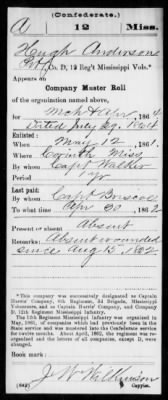 (Confederate.)
A 12 Miss.
Hugh Anderson
Pvt, Co. D, 12 Reg't Mississippi Vols.*
Appears on
Company Muster Roll
of the organization named above,
for Mch & Apr, 1864.
Dated July 29, 1864
Enlisted:
When May 12, 1861.
Where Corinth Miss
By whom Capt Walker
Period 1 yr
Last paid:
By whom Capt Briscoe
To what time Apr 30, 1862.
Present or absent Absent
Remarks: Absent wounded
since Aug 1862
*This company was successively designated as Captain
Harris' Company, 4th Regiment, 2d Brigade, Mississippi
Volunteers, and as Captain Harris' Company, and Company
D, 12th Regiment Mississippi Infantry.
The 12th Regiment Mississippi Infantry was organized in
May, 1861, of companies which had previously been in the
State service and was mustered into the Confederate service
for twelve months. About April, 1862, the regiment was re-
organized and the letters of all companies, except D, were
changed.
Book mark:
J W Wilkinson
(642) Copyist.